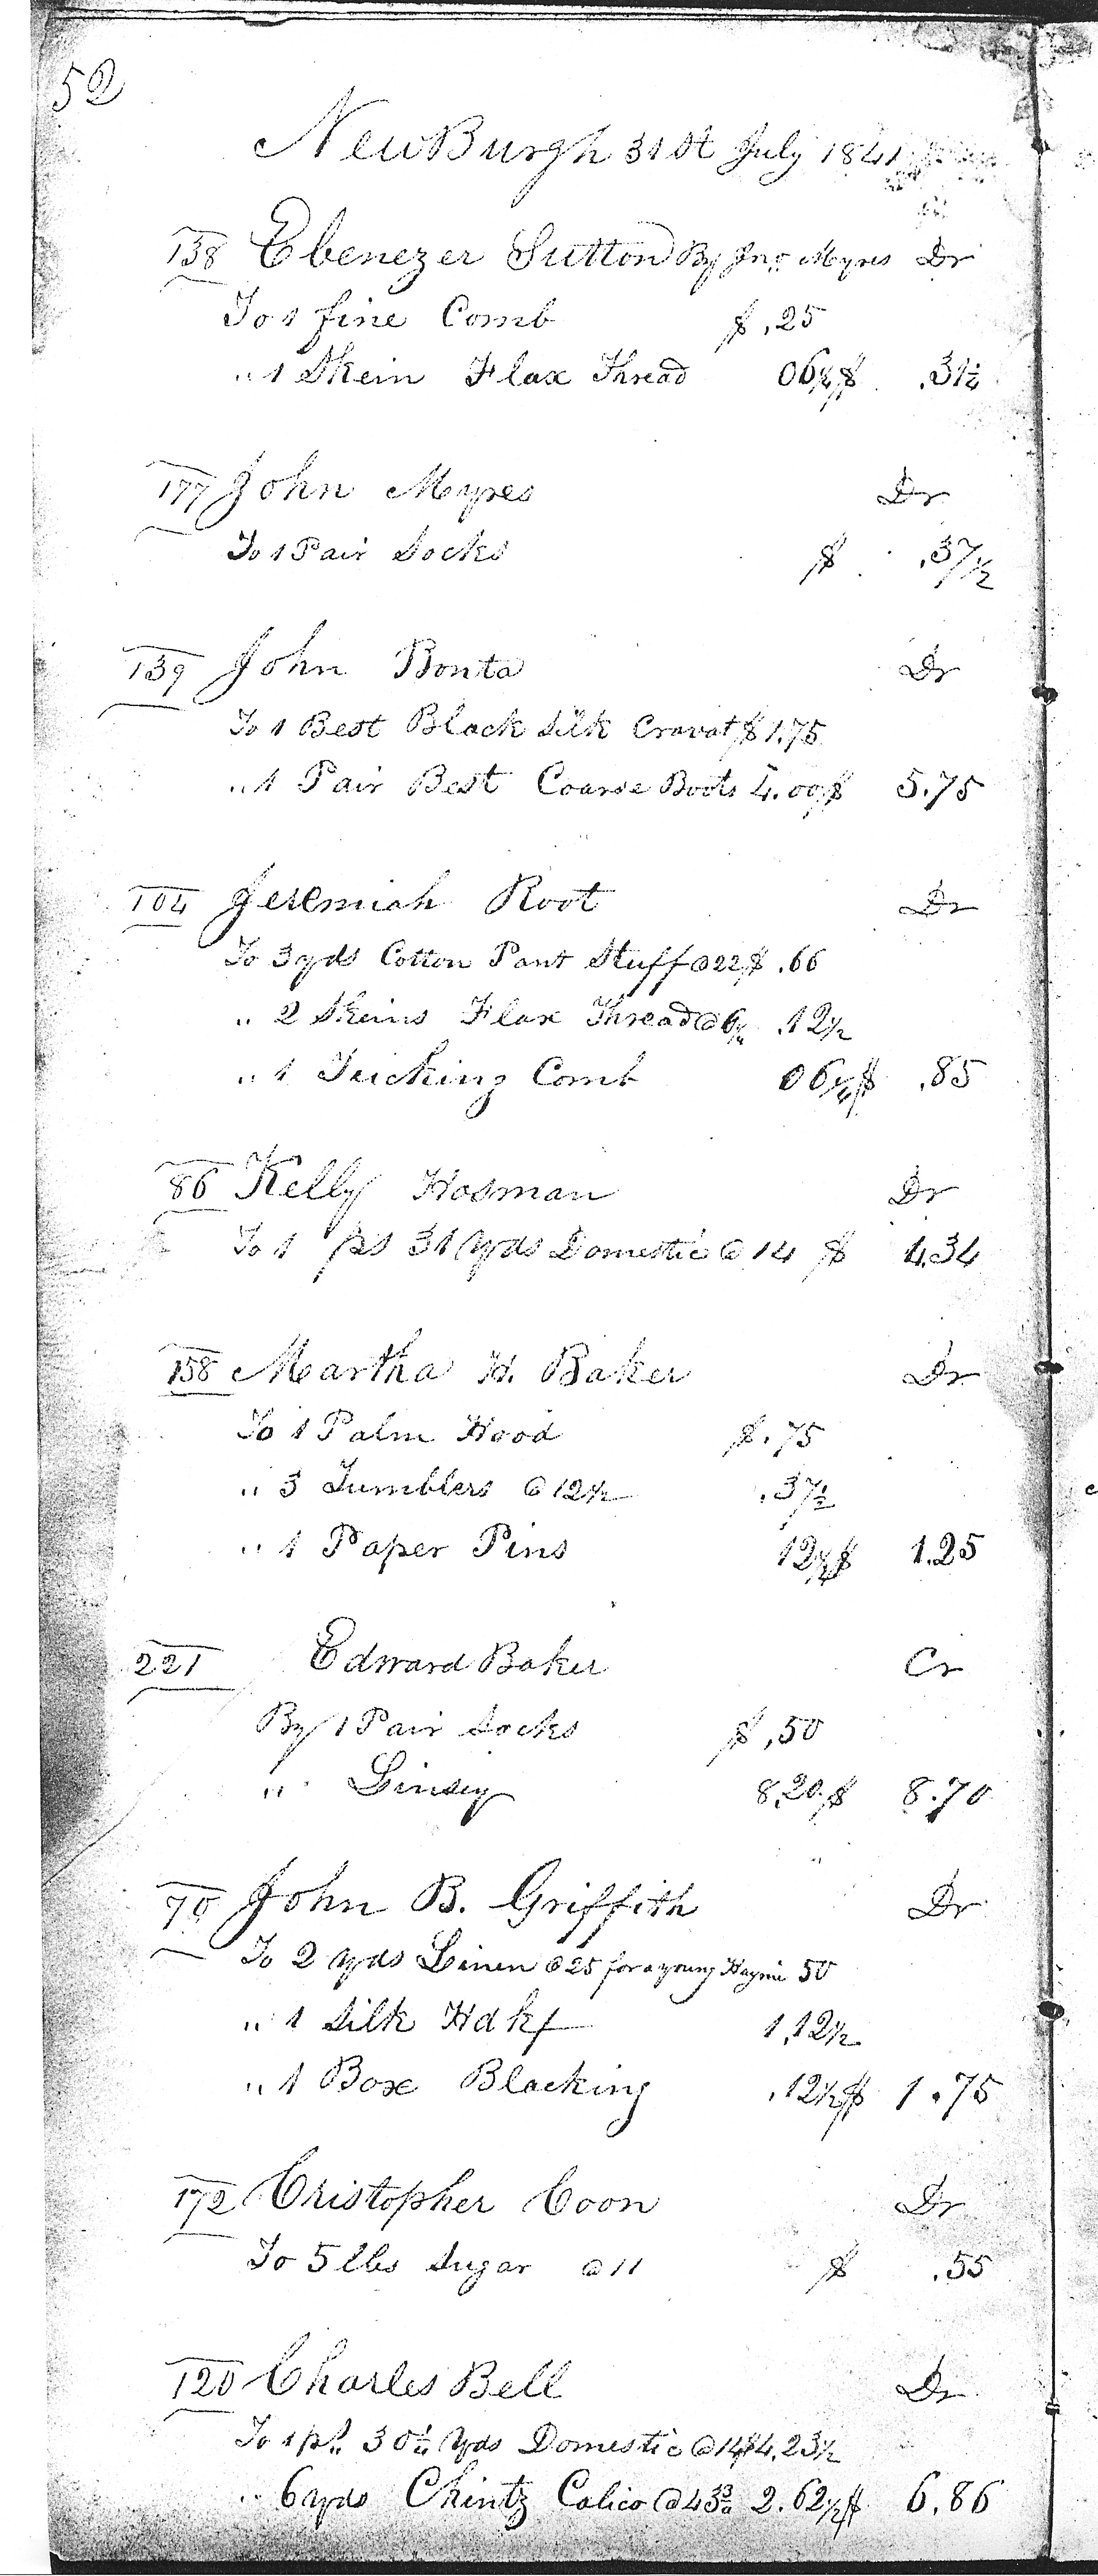 52
NewBurgh 31st July 1841
138 Ebenezer Sutton By Jno Myres Dr
To 1 fine Comb $ .25
" 1 Skein Flax Thread 06¼ $ .31¼
177 John Myres Dr
To 1 Pair Socks $ .37½
139 John Bonta Dr
To 1 Best Black Silk Cravat $ 1.75
" 1 Pair Best Coarse Boots 4.00 $ 5.75
104 Jeremiah Root Dr
To 3 yds Cotton Pant Stuff @ 22 $ .66
" 2 Skeins Flax Thread @ 6¼ .12½
" 1 Tucking Comb 06¼ $ .85
86 Kelly Hosman Dr
To 1 ps 31 Yds Domestic @ 14 $ 4.34
158 Martha H. Baker Dr
To 1 Palm Hood $ .75
" 3 Tumblers @ 12½ .37½
" 1 Paper Pins 12½ $ 1.25
221 Edward Baker Cr
By 1 Pair Socks $ .50
" Linsey 8.20 $ 8.70
70 John B. Griffith Dr
To 2 Yds Linen @ 25 for a young Haynie 50
" 1 Silk Hdkf 1.12½
" 1 Box Blacking .12½ $ 1.75
172 Cristopher Coon Dr
To 5 lbs Sugar @ 11 $ .55
120 Charles Bell Dr
To 1 ps 30¼ Yds Domestic @ 14 $ 4.23½
" 6 yds Chintz Calico @ 43¾ 2.62½ $ 6.86